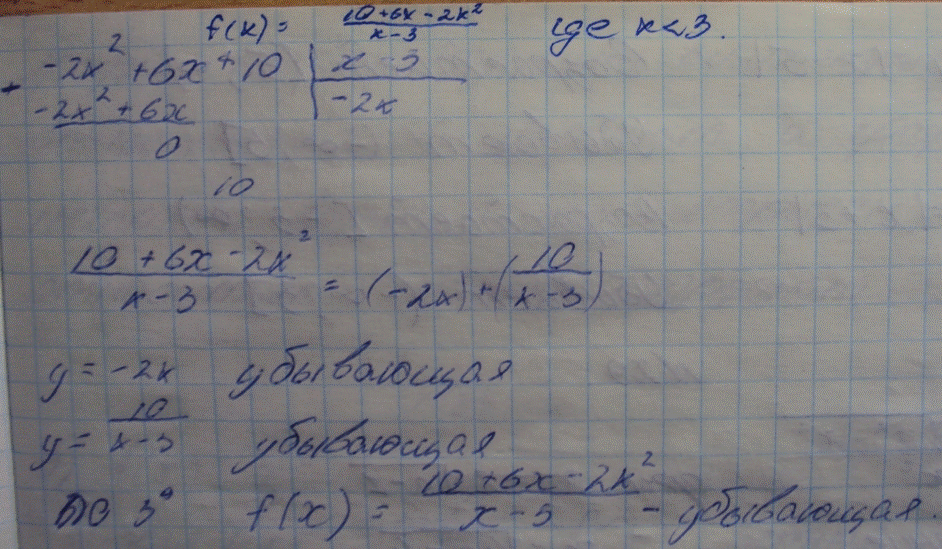 f(x) = (10+6x-2x²)/(x-3) где x<3.
-2x² + 6x + 10 | x - 3
-2x² + 6x | -2x
0
10
(10 + 6x - 2x²)/(x-3) = (-2x) + (10/(x-3))
y = -2x убывающая
y = 10/(x-3) убывающая
По 3° f(x) = (10+6x-2x²)/(x-3) - убывающая.